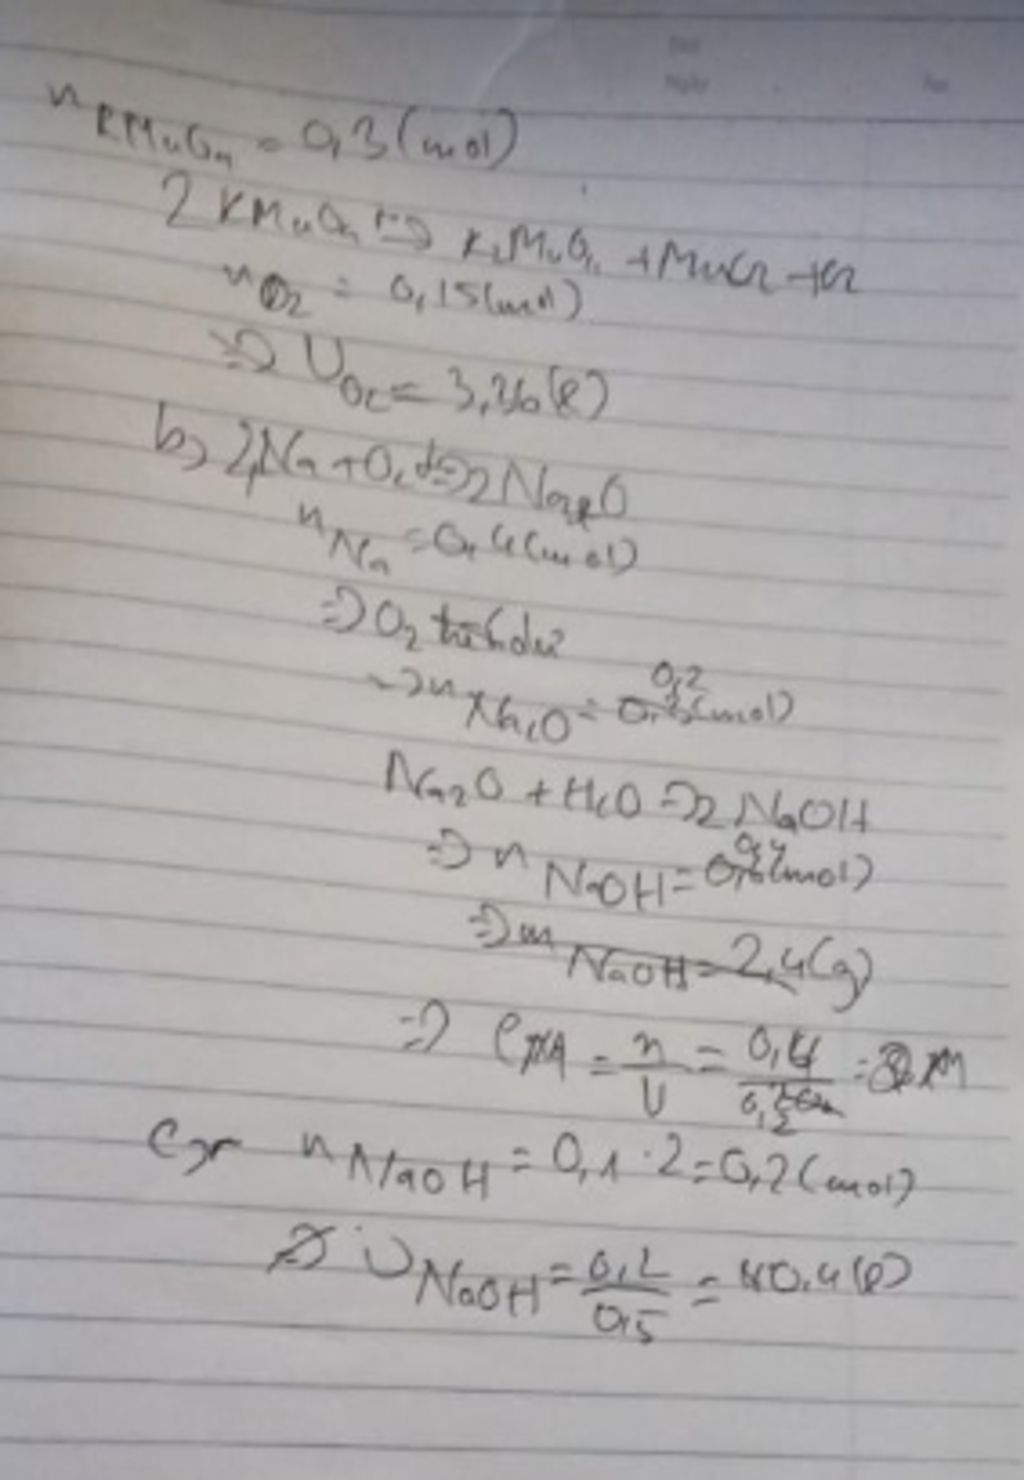 n KMnO4 = 0,3 (mol)
2 KMnO4 t° => K2MnO4 + MnO2 + O2
n O2 = 0,15 (mol)
=> V O2 = 3,36 (l)
b, 2Na + O2 => 2 Na2O
n Na = 0,4 (mol)
=> O2 dư
=> n Na2O = 0,2 (mol)
Na2O + H2O => 2 NaOH
=> n NaOH = 0,4 (mol)
=> m NaOH = 2,4 (g)
=> CM = n/V = 0,4/0,2 = 2 M
c, n NaOH = 0,1 . 2 = 0,2 (mol)
=> V NaOH = 0,2/0,5 = 0,4 (l)